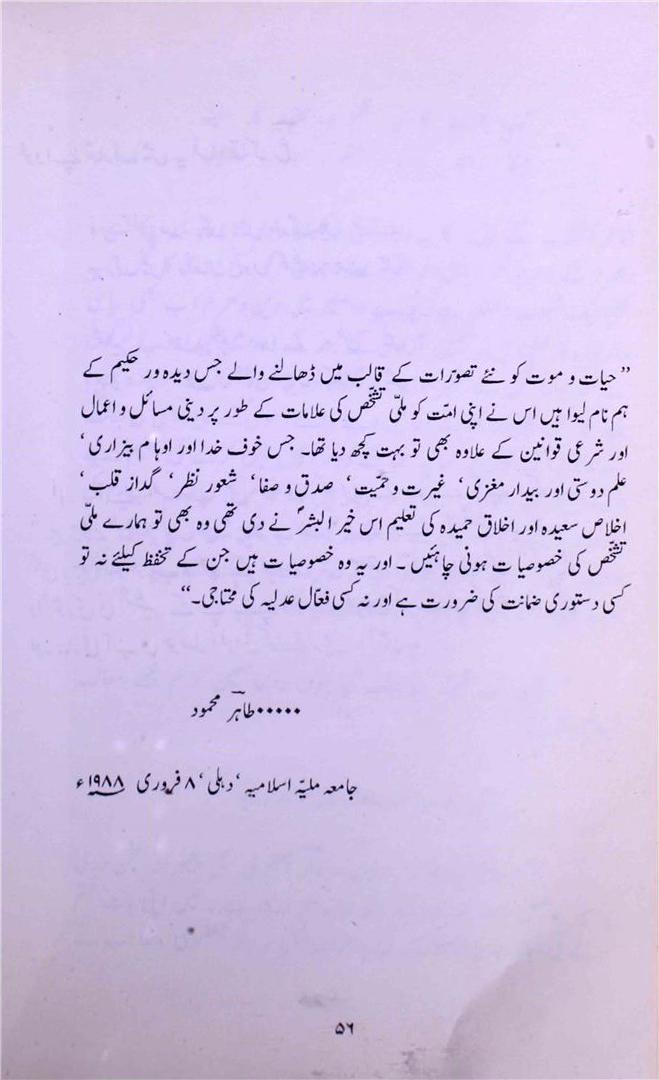 ” حیات و موت کو نئے تصوّرات کے قالب میں ڈھالنے والے جس دیدہ ور حکیم کے
ہم نام لیوا ہیں اس نے اپنی امّت کو ملّی تشخّص کی علامات کے طور پر دینی مسائل و اعمال
اور شرعی قوانین کے علاوہ بھی تو بہت کچھ دیا تھا۔ جس خوف خدا اور اوہام بیزاری ‘
علم دوستی اور بیدار مغزی ‘ غیرت و حمیّت ‘ صدق و صفا ‘ شعور نظر ‘ گداز قلب ‘
اخلاص سعیدہ اور اخلاق حمیدہ کی تعلیم اس خیر البشرؐ نے دی تھی وہ بھی تو ہمارے ملّی
تشخّص کی خصوصیات ہونی چاہئیں ۔ اور یہ وہ خصوصیات ہیں جن کے تحفظ کیلئے نہ تو
کسی دستوری ضمانت کی ضرورت ہے اور نہ کسی فعّال عدلیہ کی محتاجی۔“
۰۰۰۰۰ طاہر محمود
جامعہ ملیّہ اسلامیہ ‘ دہلی ‘ ۸ فروری ۱۹۸۸ء
۵۶